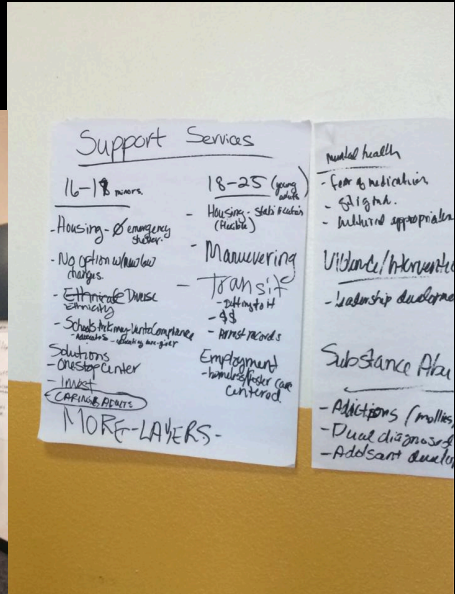 Support Services
16-18 minors.
- Housing - Ø emergency
shelter.
- No option w/new law
changes.
- Ethnicate Diverse
Ethnicity
- Schools McKinney Vento Compliance
Solutions
- One stop Center
- Invest
- CARING ADULTS
MORE - LAYERS -
18-25 (young
adults)
- Housing - stabilization
(flexible)
- Manuevering
- Transit
- Getting to it
- $$
- Arrest records
Employment
- homeless/foster care
centered
mental health
- fear of medication
- stigma.
- cultural appropriaten
Violence/Interventio
- Leadership developme
Substance Abu
- Adictions (mollies,
- Dual diagnosed
- Addsant